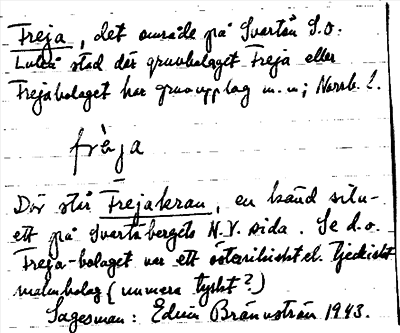 Freja, det område på Svartön S.O.
Luleå stad där gruvbolaget Freja eller
Frejabolaget har gruvupplag m.m; Norrb. l.
frèja
Där står Frejakran, en känd silu-
ett på Svartöbergets N.V. sida. Se d.o.
Freja-bolaget var ett österrikiskt el. tjeckiskt
malmbolag (numera tyskt?)
Sagesman: Edvin Brännström 1943.